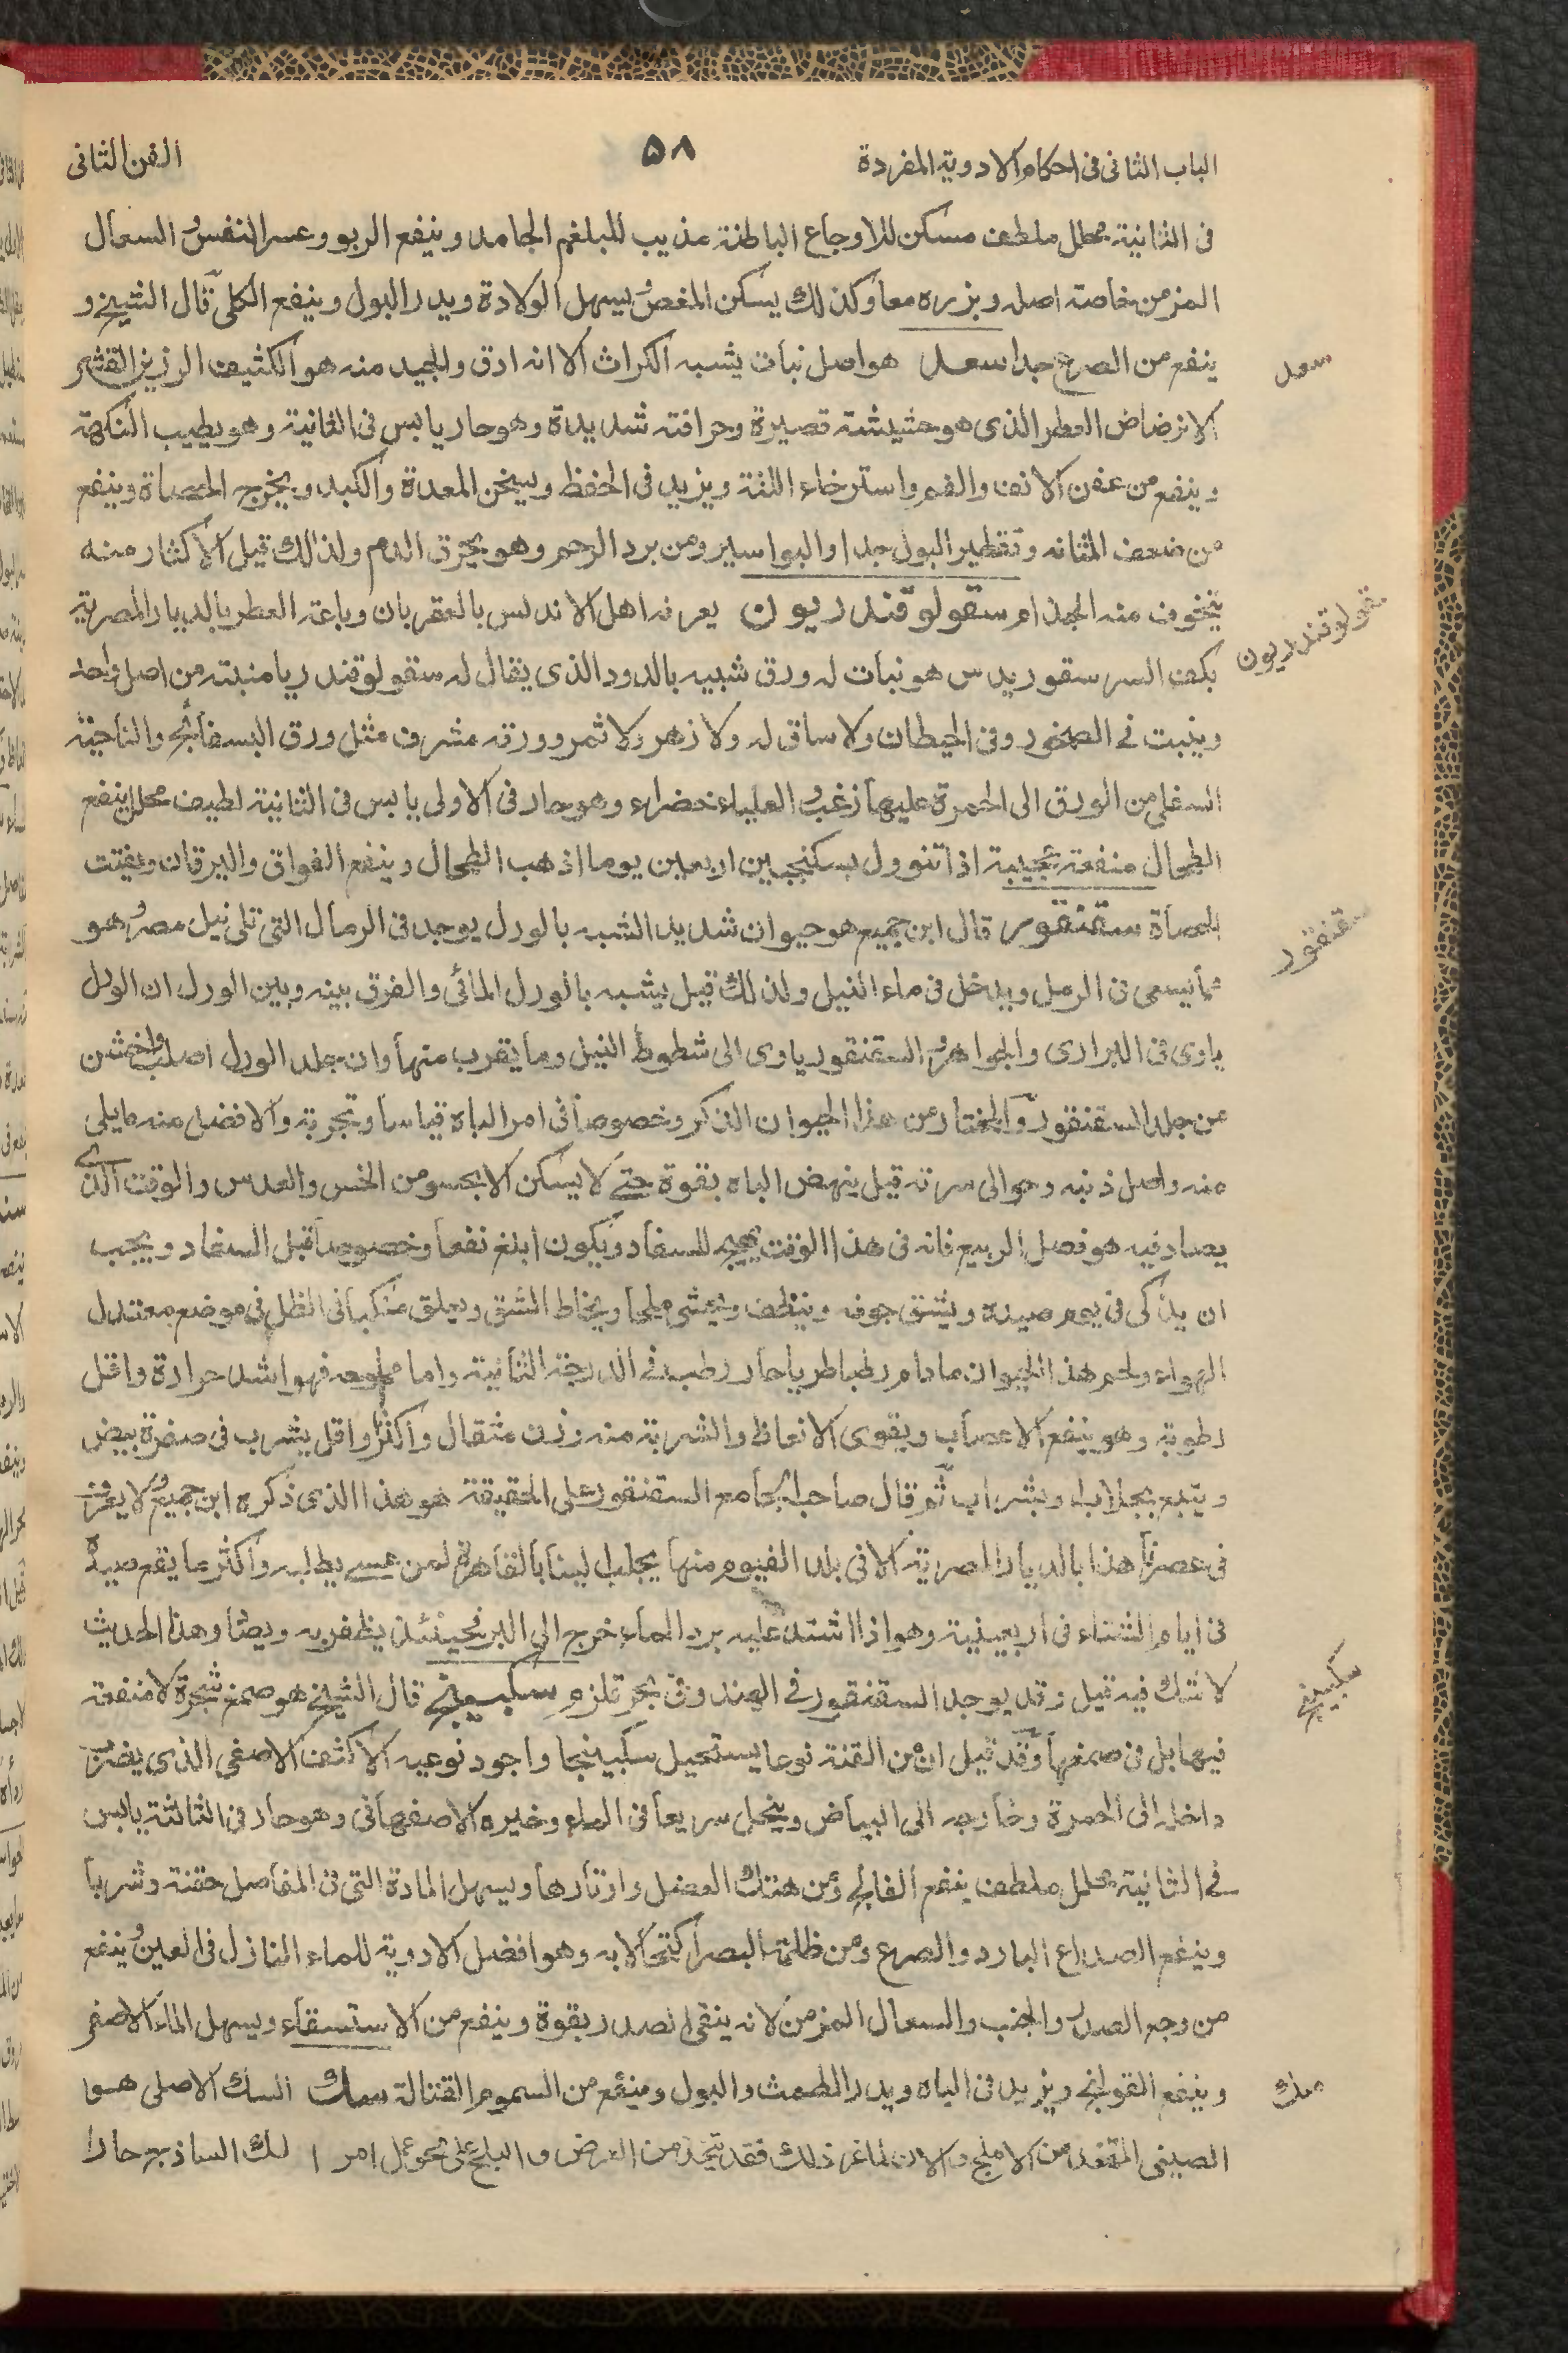 الباب الثانى فى احكام الادوية المفردة ٥٨ الفن الثانى
فى الثانية محلل ملطف مسكن للاوجاع الباطنة مذيب للبلغم الجامد وينفع الربو وعسر النفس و السعال
المزمن خاصة اصله وبزره معا وكذلك يسكن المغص و يسهل الولادة ويدر البول وينفع الكلى قال الشيخ و
ينفع من الصرع جدا سعد هو اصل نبات يشبه الكراث الا انه ادق والجيد منه هو الكثيف الرزين القشر
الانرضاض العطر الذى هو حشيشة قصيرة وحرافته شديدة وهو حار يابس فى الثانية وهو يطيب النكهة
وينفع من عفن الانف والفم واسترخاء اللثة ويزيد فى الحفظ ويسخن المعدة والكبد ويخرج الحصاة وينفع
من ضعف المثانه وتقطير البول جدا والبواسير ومن برد الرحم وهو يحرق الدم ولذلك قيل الاكثار منه
يتخوف منه الجذام سقولوقندريون يعرفه اهل الاندلس بالعقربان وباعة العطر بالديار المصرية
بكف النسر سقوريدس هو نبات له ورق شبيه بالدود الذى يقال له سقولوقندريا منبته من اصل واحد
وينبت فى الصخور وفى الحيطان ولا ساق له ولا زهر ولا ثمر وورقه مشرف مثل ورق البسفائج والناحية
السفلى من الورق الى الحمرة عليها زغب و العلياء خضراء وهو حار فى الاولى يابس فى الثانية لطيف محلل ينفع
الطحال منفعة عجيبة اذا تنوول بسكنجبين اربعين يوما اذهب الطحال وينفع الفواق واليرقان ويفتت
الحصاة سقنقور قال ابن جميع هو حيوان شديد الشبه بالورل يوجد فى الرمال التى تلى نيل مصر و هو
مما يسعى فى الرمل ويدخل فى ماء النيل ولذلك قيل يشبه بالورل المائى والفرق بينه وبين الورل ان الورل
ياوى فى البرارى والجواهر و السقنقور ياوى الى شطوط النيل وما يقرب منها وان جلد الورل اصلب واخشن
من جلد السقنقور والمختار من هذا الحيوان الذكر وخصوصا فى امر الباه قياسا وتجربة والافضل منه مايلى
منه واصل ذنبه وحوالى سرته قيل ينهض الباه بقوة حتى لا يسكن الا بحسو من الخس والعدس والوقت الذى
يصاد فيه هو فصل الربيع فانه فى هذا الوقت يهيج للسفاد ويكون ابلغ نفعا وخصوصا قبل السفاد ويجب
ان يذكى فى يوم صيده ويشق جوفه وينظف ويحشى ملحا ويخاط الشق ويعلق منكبا فى الظل فى موضع معتدل
الهواء ولحم هذا الحيوان مادام رطبا طريا حار رطب فى الدرجة الثانية واما مملوحه فهو اشد حرارة واقل
رطوبة وهو ينفع الاعصاب ويقوى الانعاظ والشربة منه وزن مثقال واكثر و اقل يشرب فى صفرة بيض
ويتبع بجلاب او بشراب ثم قال صاحب الجامع السقنقور على الحقيقة هو هذا الذى ذكره ابن جميع و لا يعرف
فى عصرنا هذا بالديار المصرية الا فى بلاد الفيوم منها يجلب لينا بالقاهرة لمن عسى يطلبه واكثر ما يقع صيده
فى ايام الشتاء فى اربعينية وهو اذا اشتد عليه برد الماء خرج الى البر فحينئذ يظفر به ويصاد وهذا الحديث
لا شك فيه قيل وقد يوجد السقنقور فى الهند وفى بحر قلزم سكبينج قال الشيخ هو صمغ شجرة لا منفعة
فيها بل فى صمغها وقد قيل ان من القنة نوعا يستحيل سكبينجا واجود نوعيه الاكثف الاصفى الذى يضرب
داخله الى الحمرة وخارجه الى البياض وينحل سريعا فى الماء وخيره الاصفهانى وهو حار فى الثالثة يابس
فى الثانية محلل ملطف ينفع الفالج ومن هتك العضل واوتارها ويسهل المادة التى فى المفاصل حقنة وشربا
وينفع الصداع البارد والصرع ومن ظلمة البصر اكتحالا به وهو افضل الادوية للماء النازل فى العين و ينفع
من وجع الصدر والجنب والسعال المزمن لانه ينقى الصدر بقوة وينفع من الاستسقاء ويسهل الماء الاصفر
وينفع القولنج ويزيد فى الباه ويدر الطمث والبول وينفع من السموم القتالة سك السك الاصلى هو
الصينى المتخذ من الاملج والان لما عز ذلك فقد يتخذ من العفص و البلح على نحو عمل السك الساذج حار
سعد
سقولوقندريون
سقنقور
سكبينج
سك